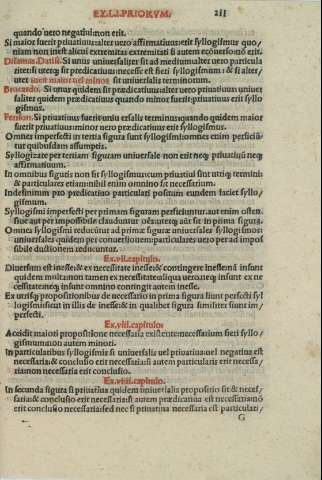 EX.LI.PRIORVM.
quando vero negatiui non erit.
Si maior fuerit priuatiua: alter vero affirmatiuus: erit syllogismus quo/
niam non inest alicui extremitas extremitati si autem conuersonō erit.
Disamis. Datisi. Si unus uniuersaliter sit ad medium alter vero particula
riter: si uterq; sit prædicatiuus: necesse est fieri syllogismum: & si alter/
uter uel maior uel minor sit uniuersalis terminorum.
Brocardo. Si unus quidem sit prædicatiuus: alter vero priuatiuus uniuer
saliter quidem prædicatiuus quando minor fuerit: priuatiuus erit syllo
gismus.
Ferison. Si priuatiuus fuerit uniuersalis terminus: quando quidem maior
fuerit priuatiuus minor vero prædicatiuus erit syllogismus.
Omnes imperfecti in tertia figura sunt syllogismi: omnes enim perficiū/
tur quibusdam assumptis.
Syllogizare per tertiam figuram uniuersale non erit neq; priuatiuū neq;
affirmatiuum.
In omnibus figuris non sit syllogismus cum priuatiui sint utriq; termini
& particulares etiam: nihil enim omnino fit necessarium.
Indefinitum pro prædicatiuo particulari positum eundem faciet syllo/
gismum.
Syllogismi imperfecti per primam figuram perficiuntur. aut enim osten.
siue aut per impossibile clauduntur oēs: utreq; aūt fit in prima figura.
Omnes syllogismi reducūtur ad primæ figuræ uniuersales syllogismos:
uniuersales quidem per conuersionem: particulares vero per ad impos
sibile ductionem reducuntur.
Ex.vii.capitulo.
Diuersum est inesse: & ex necessitate inesse: & contingere inesse: nā insunt
quidem multa: non tamen ex necessitate: aliqua vero neq; insunt ex ne
cessitate: neq; insunt omnino contingit autem inesse.
Ex utrisq; propositionibus de necessario in prima figura fiunt perfecti syl
logismi: sicut in illis de inesse: & in qualibet figura similiter sunt im/
perfecti.
Ex.viii.capitulo.
Accidit maiori propositione necessaria existente: necessarium fieri syllo/
gismum: non autem minori.
In particularibus syllogismis si uniuersalis uel priuatiua uel negatiua est
necessaria: & conclusio erit necessaria: si autem particularis erit necessa/
ria: non necessaria erit conclusio.
Ex.viiii.capitulo.
In secunda figura si priuatiua quidem uniuersalis propositio sit & neces/
saria: & conclusio erit necessaria: si autem prædicatiua est necessaria: nō
erit conclusio necessaria: sed nec si priuatiua necessaria est particulari/
G